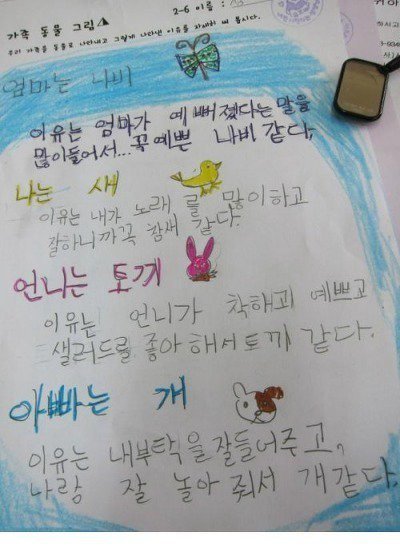 가족 동물 그림
2-6 이름 :
우리 가족을 동물로 나타내고 그렇게 나타낸 이유를 자세히 써 봅시다.
엄마는 나비
이유는 엄마가 예뻐졌다는 말을
많이들어서...꼭예쁜 나비 같다,
나는 새
이유는 내가 노래를 많이하고
잘하니까꼭 참새 같다.
언니는 토끼
이유는 언니가 착해고 예쁘고
샐러드를 좋아해서토끼 같다.
아빠는 개
이유는 내부탁을잘들어주고,
나랑 잘 놀아 줘서 개같다.